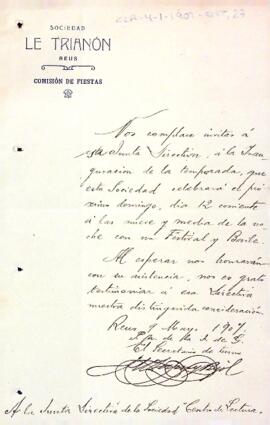 SOCIEDAD
LE TRIANÓN
REUS
COMISIÓN DE FIESTAS
Nos complace invitar á
esa Junta Directiva, á la Inau-
guración de la temporada, que
esta Sociedad celebrará el pró-
ximo domingo, dia 12 corriente
á las nueve y media de la no-
che con un Festival y Baile.
Al esperar nos honrarán
con su asistencia, nos es grato
testimoniar á esa Directiva
nuestra distinguida consideración.
Reus 9 Mayo 1907.
El Secretario
A la Junta Directiva de la Sociedad "Centro de Lectura.